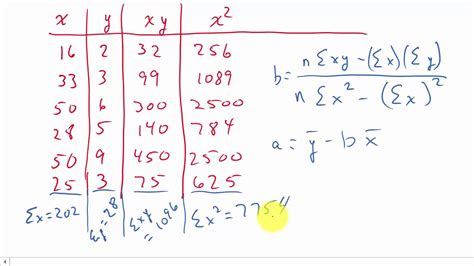 x y xy x²
16 2 32 256
33 3 99 1089
50 6 300 2500
28 5 140 784
50 9 450 2500
25 3 75 625
Σx=202 Σy=28 Σxy=1096 Σx²=7754
b= nΣxy-(Σx)(Σy) / nΣx²-(Σx)²
a= ȳ-bx̄